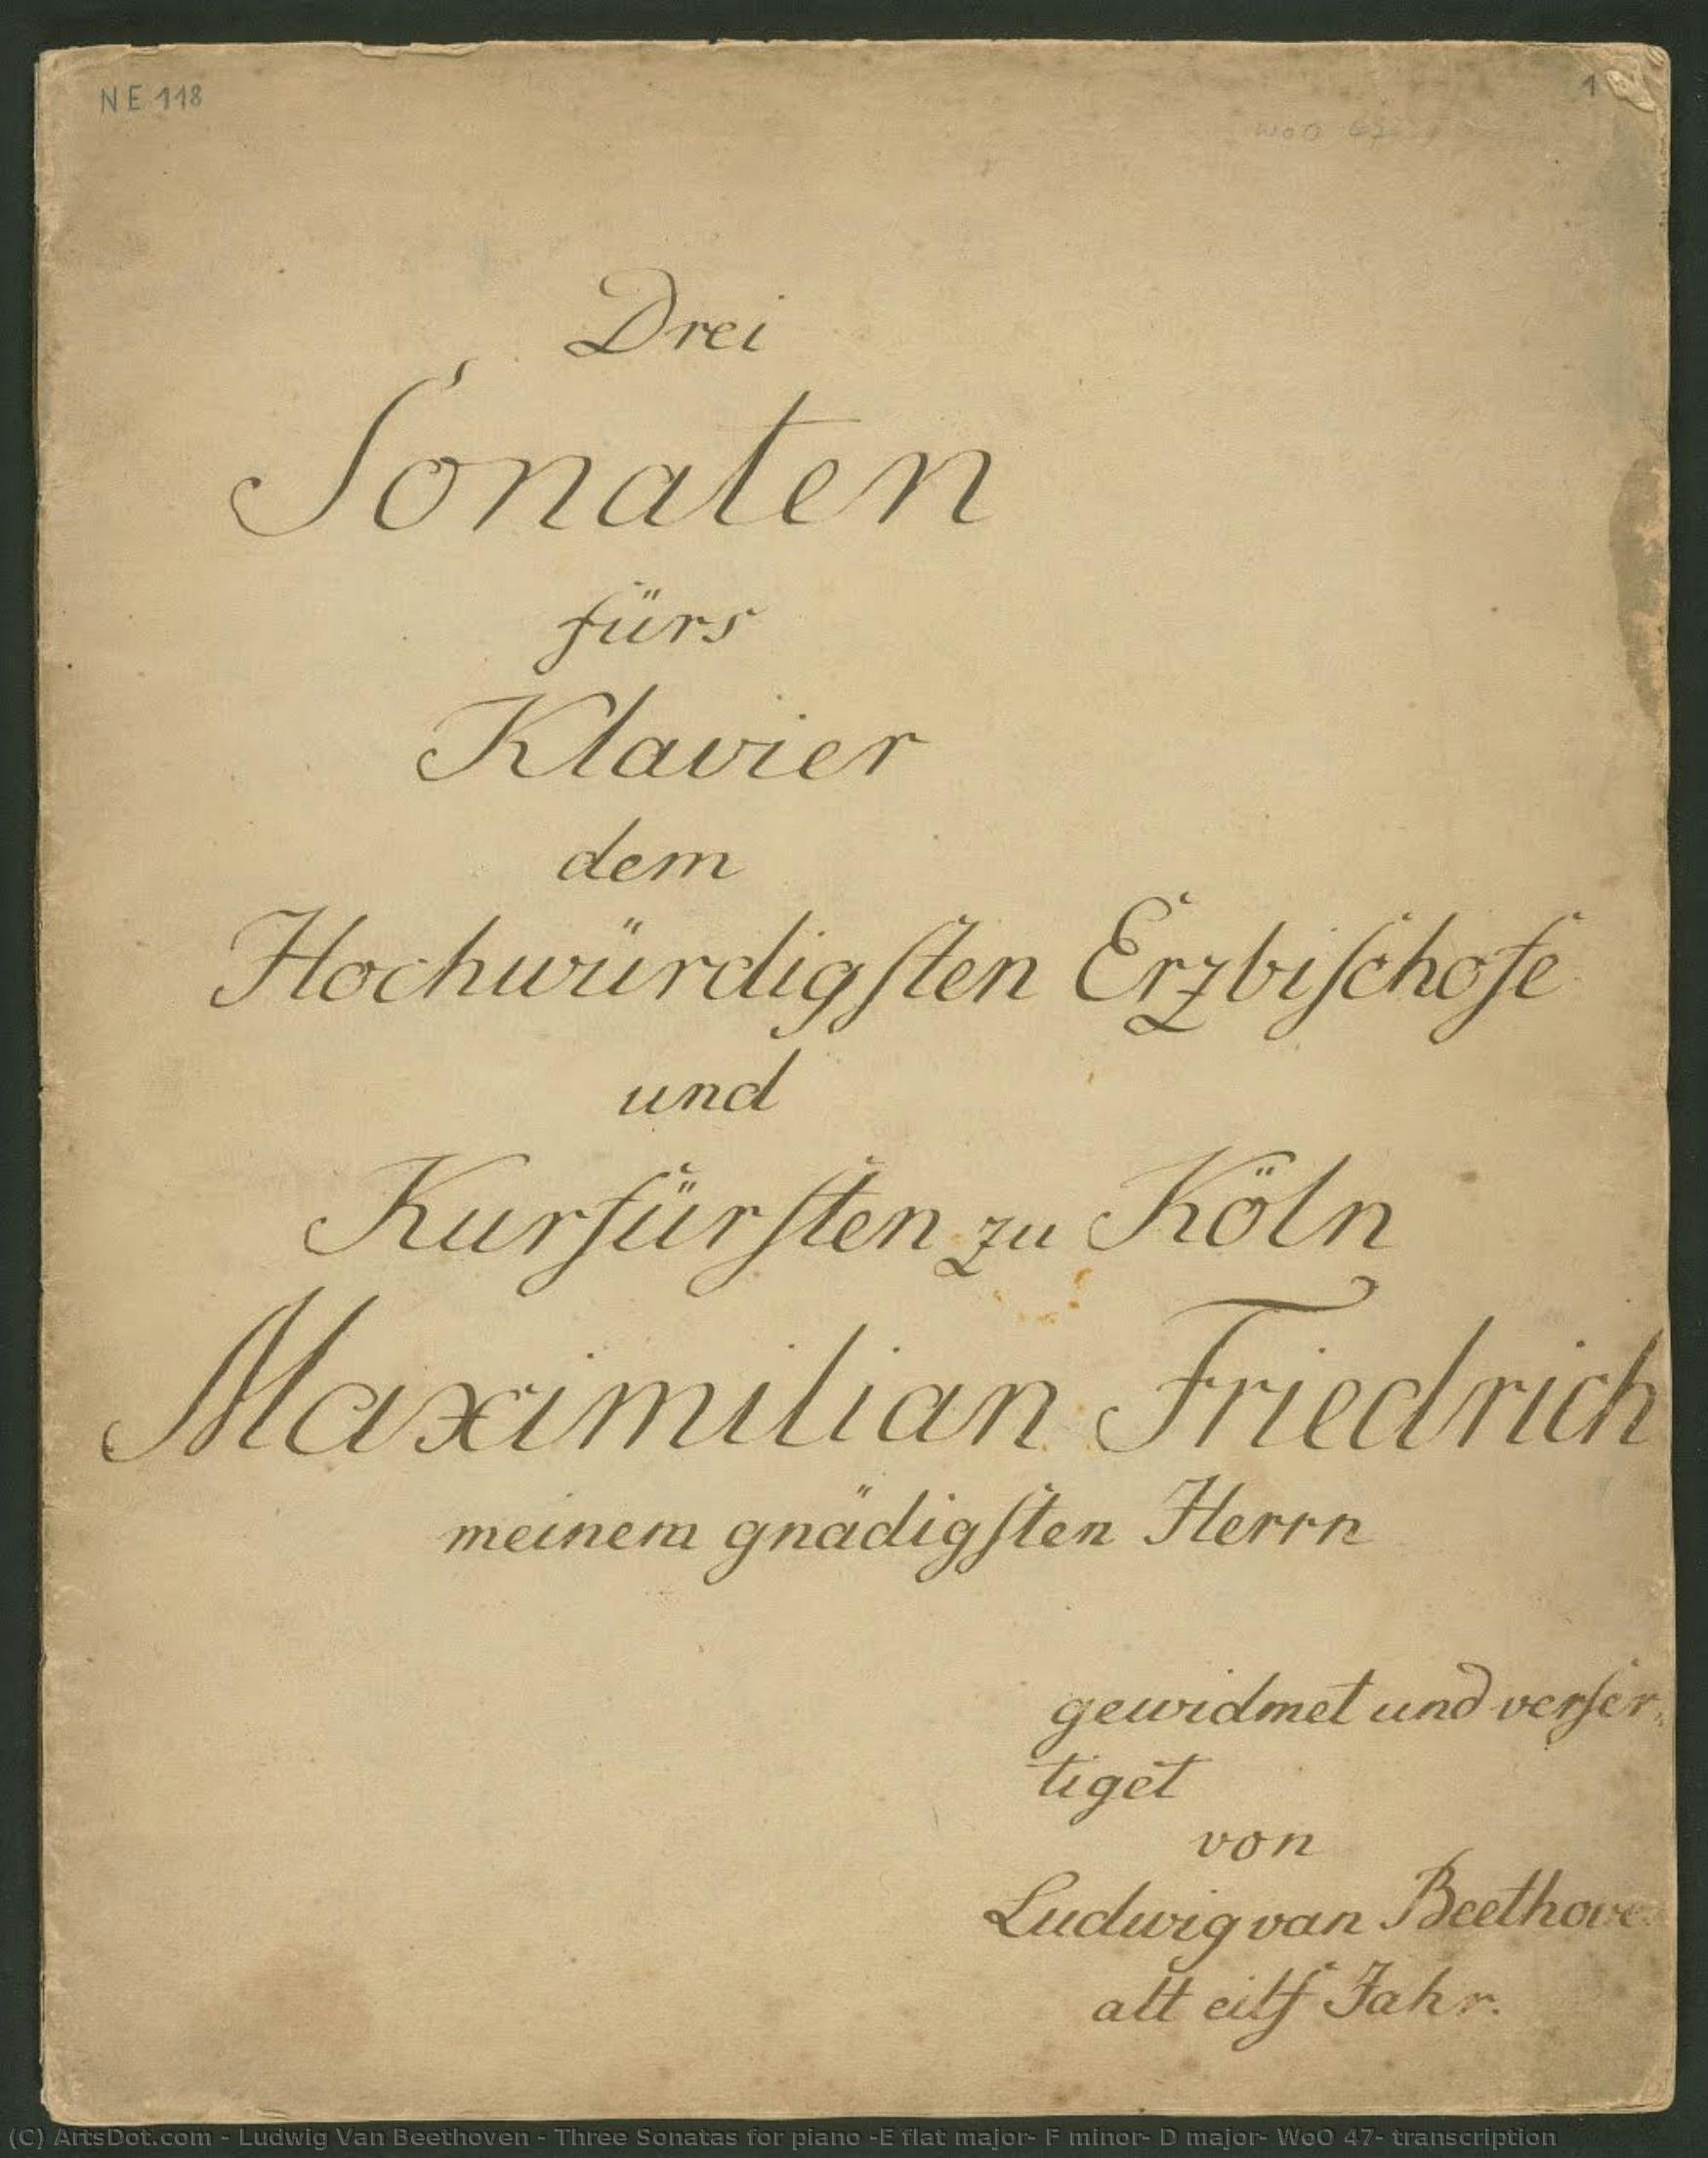 NE 118
1
WoO 47
Drei
Sonaten
fürs
Klavier
dem
Hochwürdigſten Erzbiſchofe
und
Kurfürſten zu Köln
Maximilian Friedrich
meinem gnädigſten Herrn
gewidmet und verfer-
tiget
von
Ludwig van Beethove
alt eilf Jahr.
(C) ArtsDot.com - Ludwig Van Beethoven - Three Sonatas for piano -E flat major- F minor- D major- WoO 47- transcription